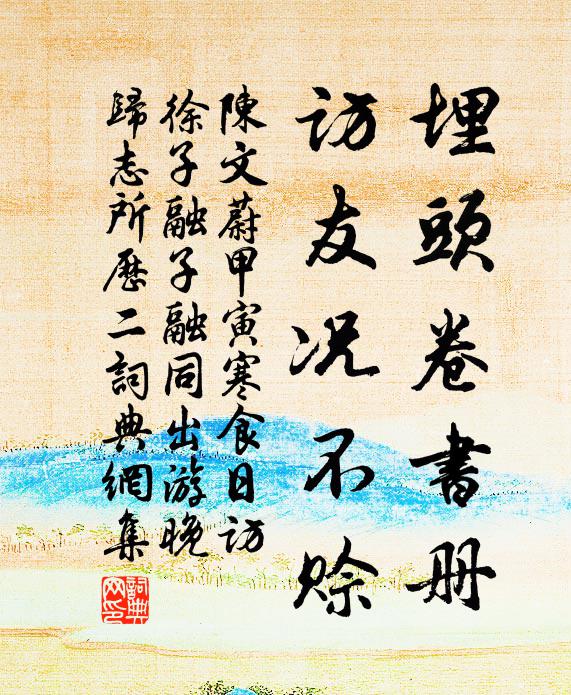 埋頭卷書册
訪友况不賒
陳文蔚甲寅寒食日訪
徐子融子融同出游晚
歸志所歷二詞典網集
詞典網印